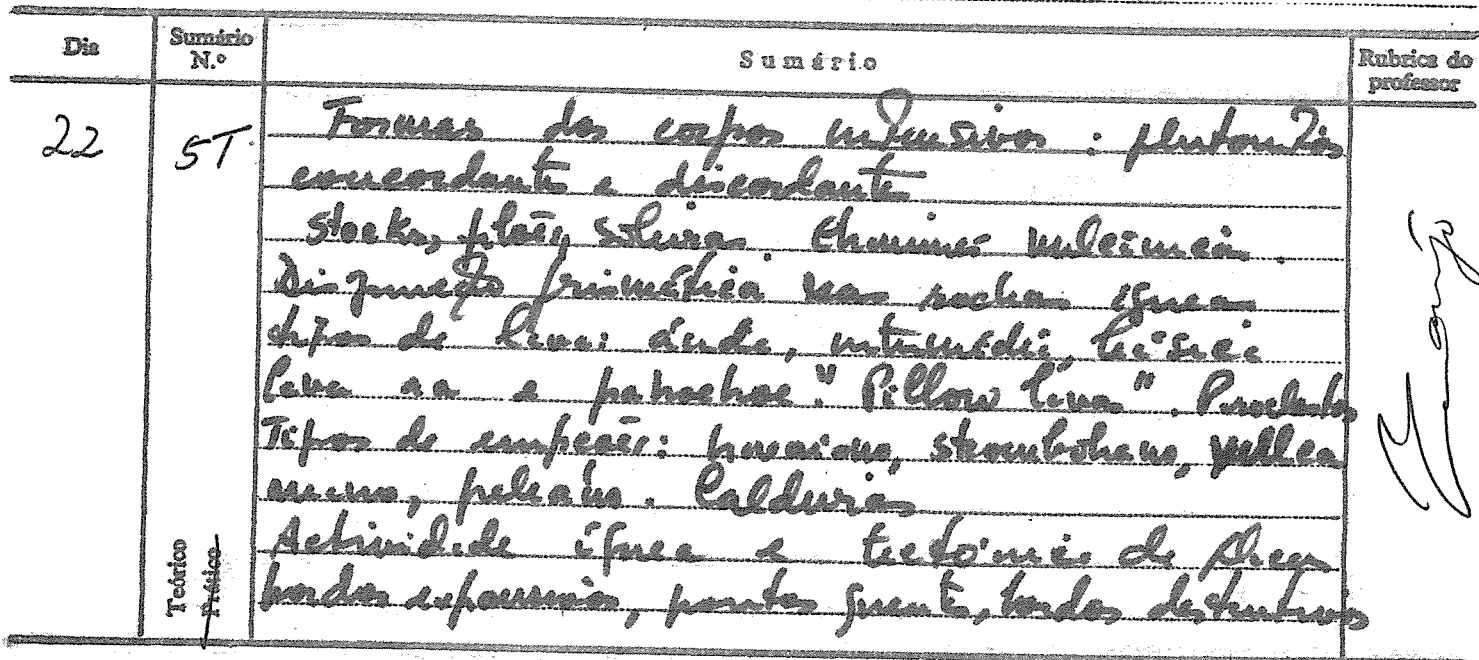 Dia Sumário N.º Sumário Rubrica do professor
22 5T Formas dos corpos intrusivos: plutonitos
concordantes e discordantes
Stocks, filões, soleiras. Chaminé vulcânica.
Disjunção prismática nas rochas ígneas
tipos de lava: ácida, intermédia, básica
lava aa e pahoehoe. "Pillow lava". Piroclastos
Tipos de erupções: havaiano, stromboliano, vulca
niano, peleano. Caldeiras
Actividade ígnea e tectónica de placas
bordos expansivos, pontos quentes, bordos destrutivos
Teórico
Prático